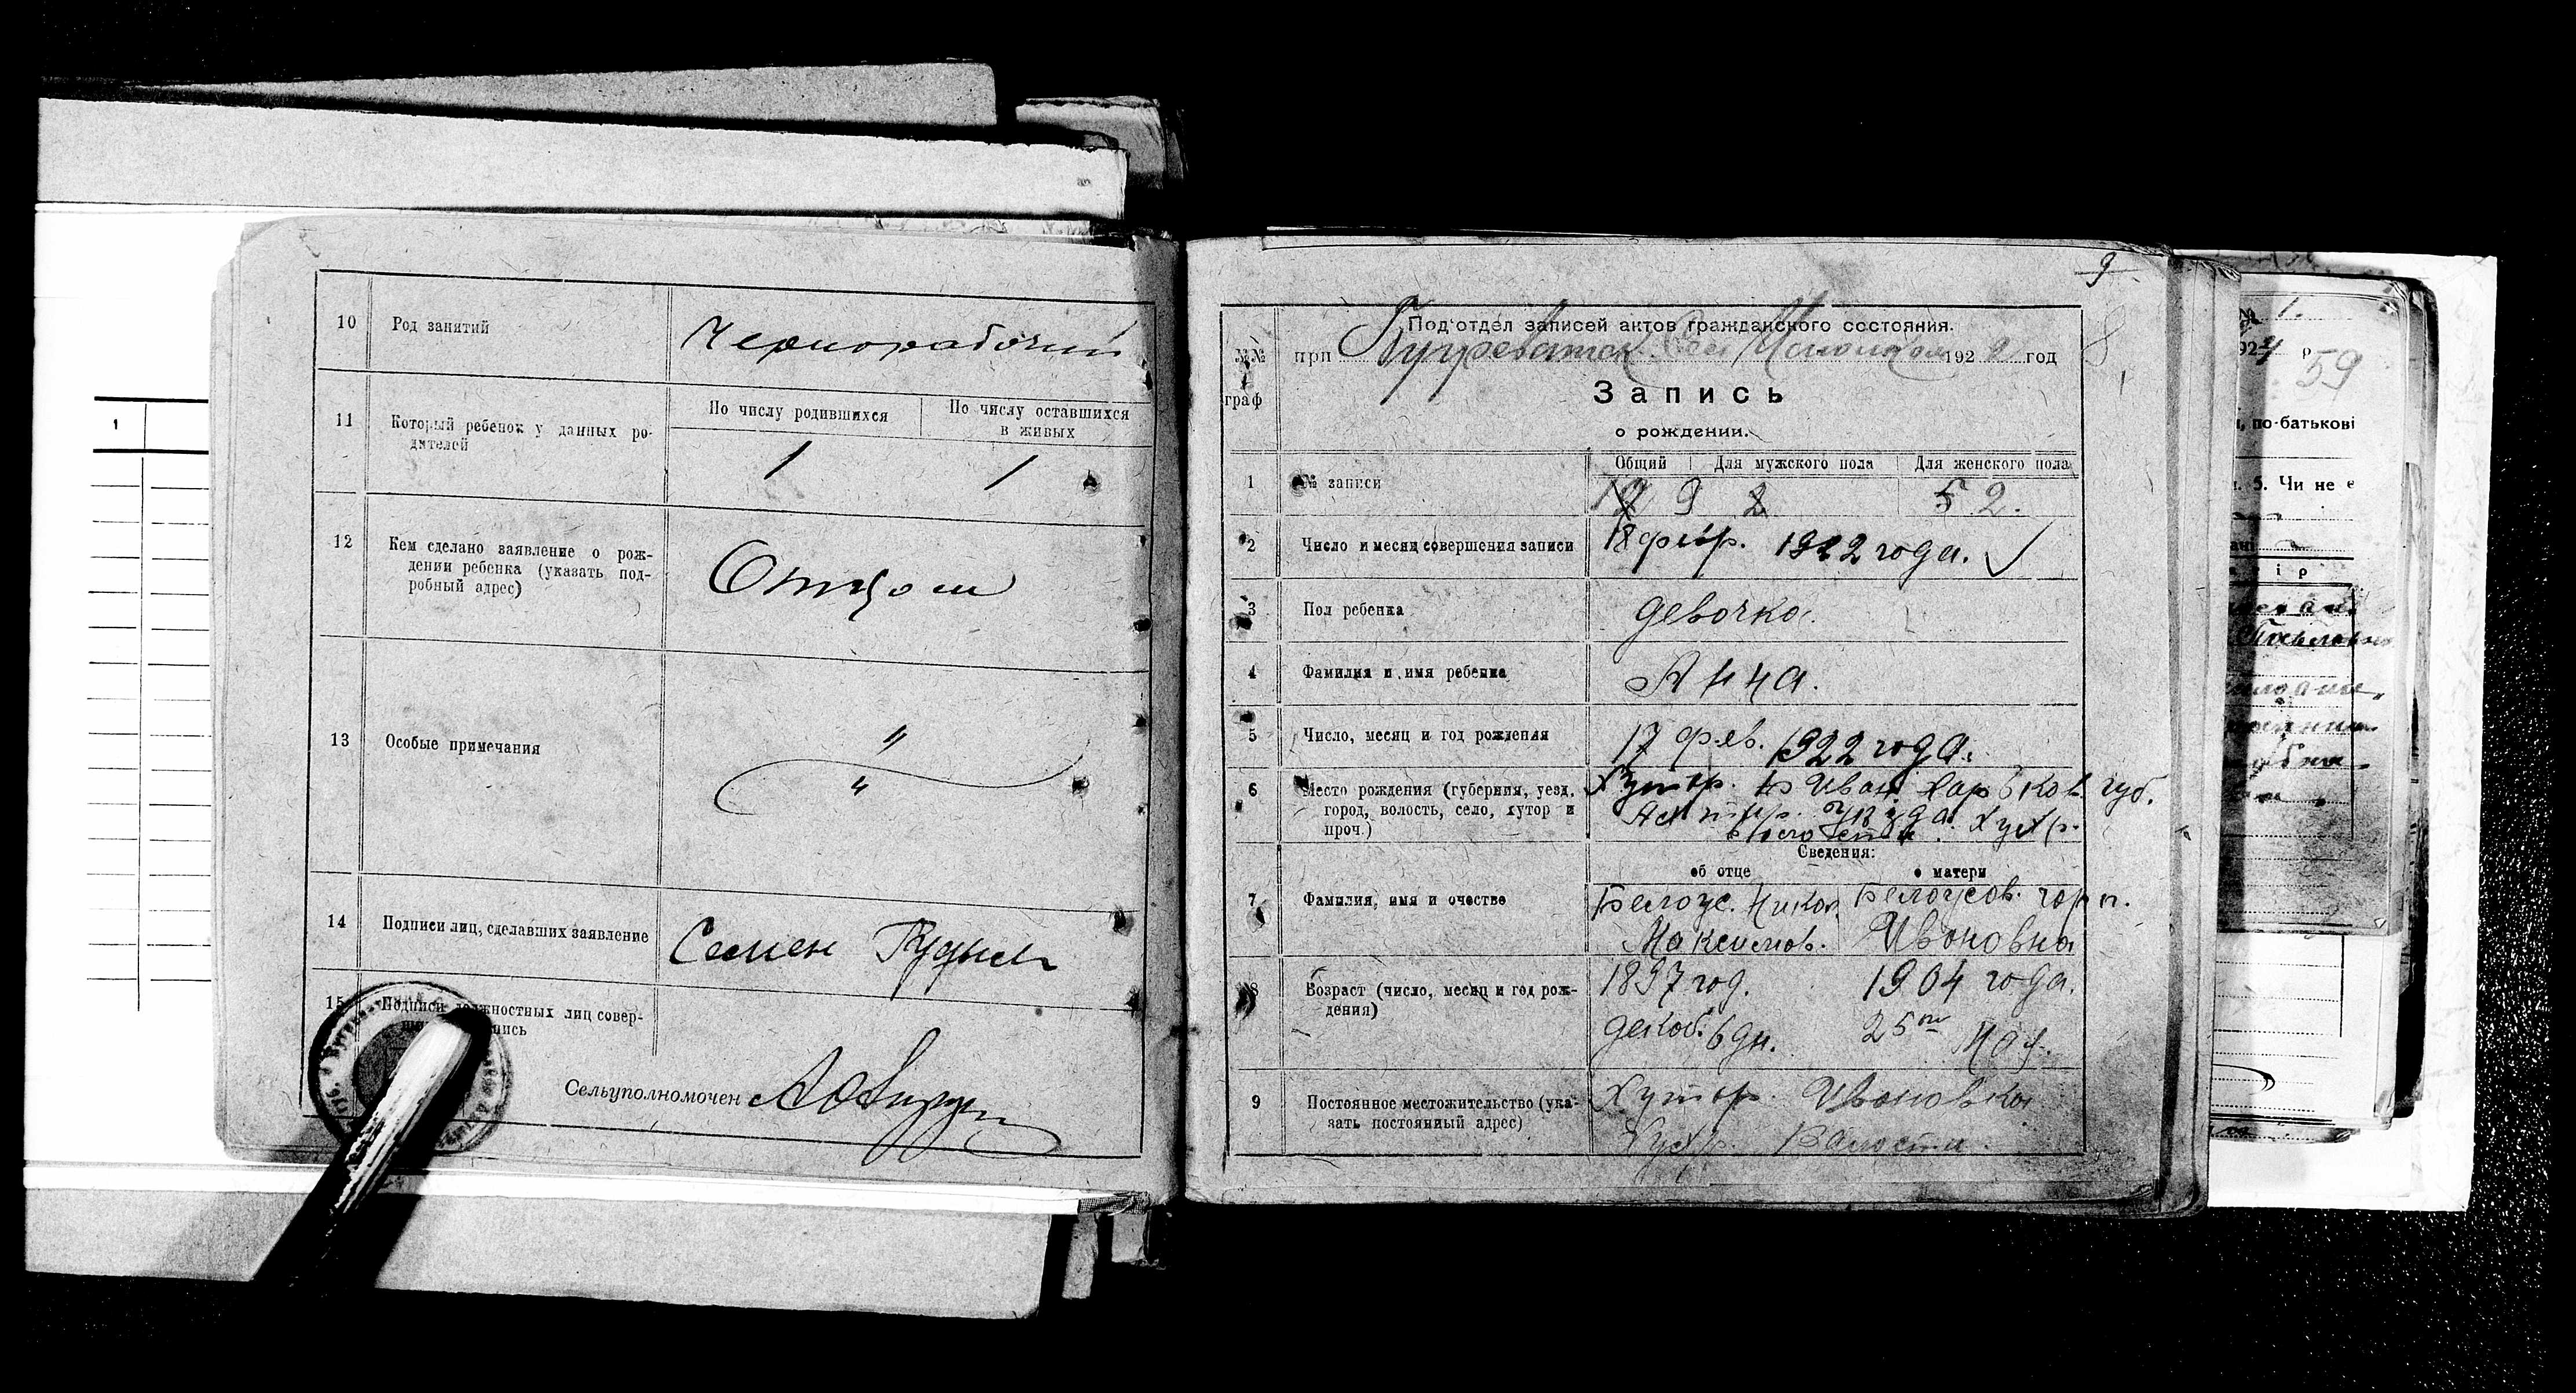 10 Род занятий Чернорабочий
11 Который ребенок у данных ро-
дителей
По числу родившихся По числу оставшихся
в живых
1 1
12 Кем сделано заявление о рож-
дении ребенка (указать под-
робный адрес)
Отцом
13 Особые примечания
"
"
14 Подписи лиц, сделавших заявление Семен
15 Подписи должностных лиц совер-
Сельуполномочен
9
Под'отдел записей актов гражданского состояния.
№№
граф
при 192 год
Запись
о рождении.
Общий Для мужского пола Для женского пола
1 № записи 9 2.
2 Число и месяц совершения записи 18 1922 года.
3 Пол ребенка девочка.
4 Фамилия и имя ребенка Анна.
5 Число, месяц и год рождения 17 фев. 1922 года.
6 Место рождения (губерния, уезд,
город, волость, село, хутор и
проч.)
Хутор. Иван Харьков. губ.
Сведения:
об отце о матери
7 Фамилия, имя и очество
Белоус. Никол. Белоусов.
Максимов. Ивановна
8 Возраст (число, месяц и год рож-
дения)
1897 год. 1904 года.
декаб. 6 дн. 25 го Мая.
9 Постоянное местожительство (ука-
зать постоянный адрес)
Хутор. Ивановка
Хухр. Валости.
1
1.
р
59
по-батькові
5. Чи не є